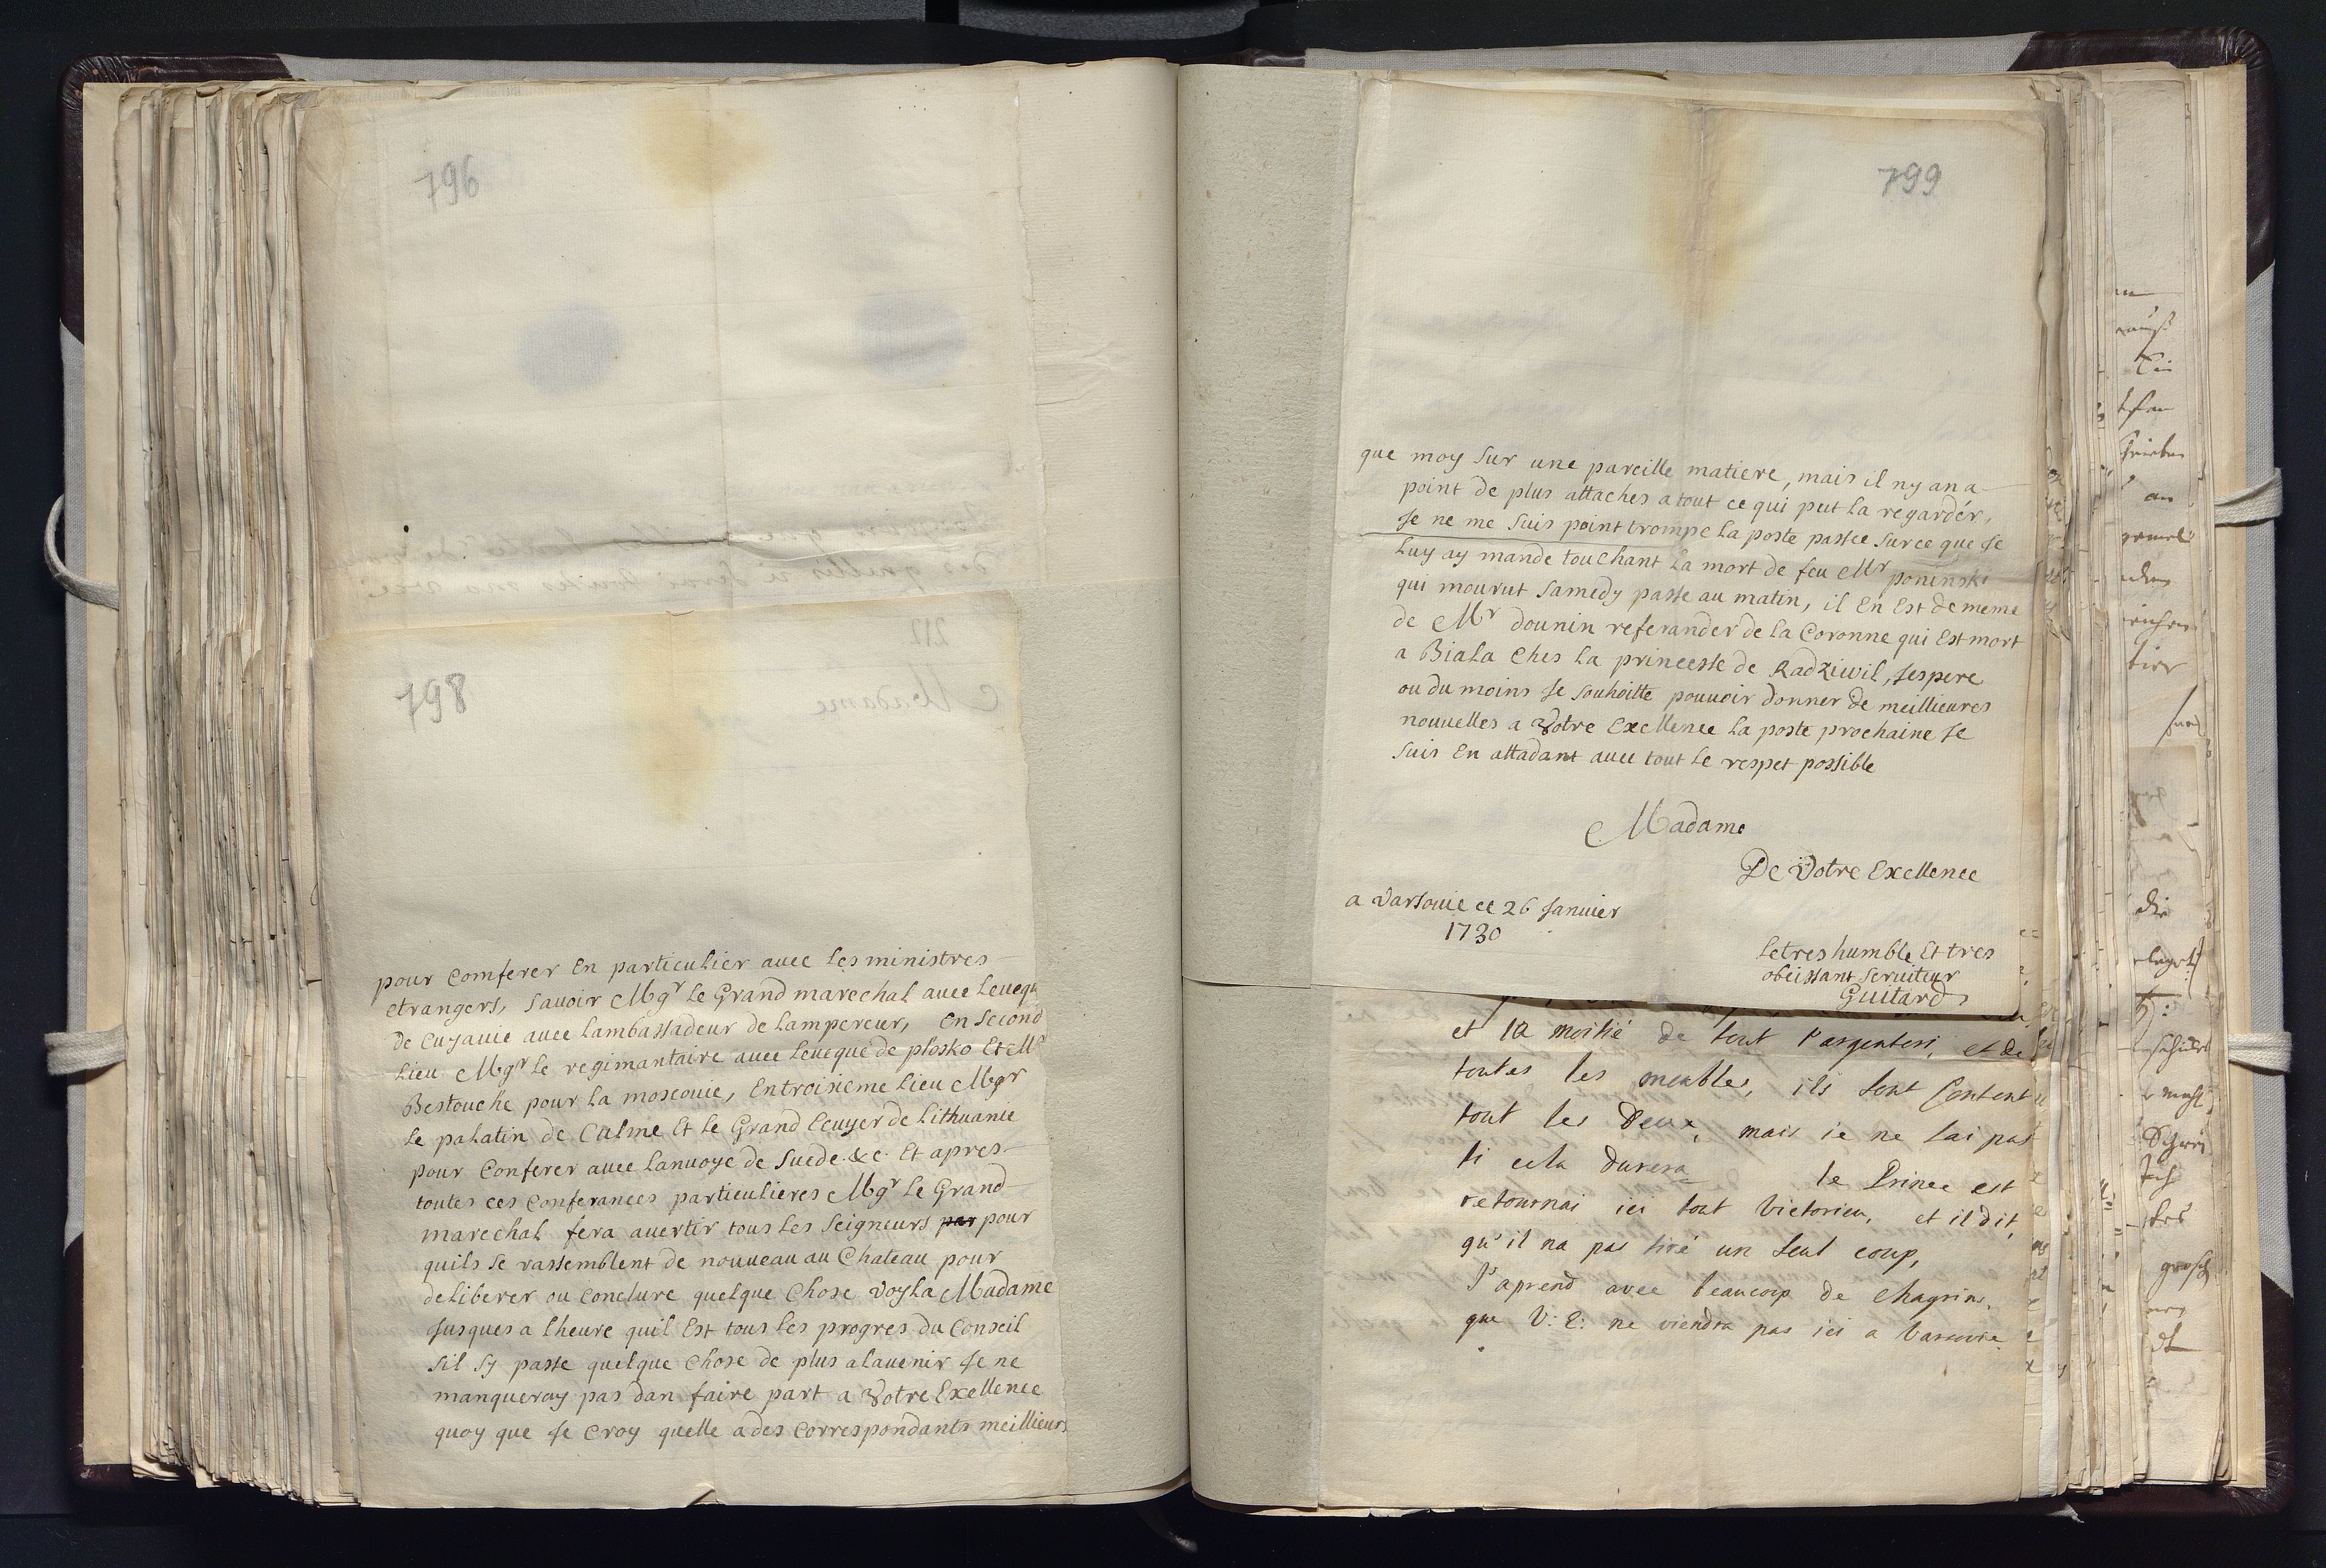 796
798
pour Comferer En particulier auec les ministres
etrangers, Sauoir Mgr le Grand marechal auec leuequ
de Cujauie auec lambassadeur de lampereur, En Second
lieu Mgr le regimantaire auec leueque de plosko Et Mr
Bestouche pour la moscouie, Entroisieme lieu Mgr
le palatin de Culme Et le Grand Ecuyer de Lithuanie
pour Conferer auec lanuoye de Suede &c. Et apres
toutes ces Conferances particulieres Mgr le Grand
marechal fera auertir tous les Seigneurs par pour
quils se rassemblent de nouueau au Chateau pour
deliberer ou Conclure quelque Chose voyla Madame
Jusques a lheure quil Est tous les progres du Conseil
Sil Sy passe quelque Chose de plus alauenir Je ne
manqueray pas dan faire part a Votre Exellence
quoy que Je Croy quelle a des Correspondants meillieurs
799
que moy Sur une pareille matiere, mais il ny an a
point de plus attaches a tout ce qui peut la regardér,
Je ne me Suis point trompe la poste passee Surce que Je
luy ay mande touchant la mort de feu Mr poninski
qui mourut Samedy passe au matin, il En Est de meme
de Mr dounin referander de la Coronne qui Est mort
a Biala Ches la princesse de Radziwil, Jespere
ou du moins Je Souhoitte pouuoir donner de meillieures
nouuelles a Votre Exellence la poste prochaine Je
Suis En attadant auec tout le respet possible
Madame
De Votre Exellence
a Varsouie ce 26 Januier
1730
Letreshumble Et tres
obeissant Seruiteur
Guitard
et la moitié de tout l'argenteri, et de
toutes les meubles, ils sont Content
tout les deux, mais ie ne sai pas
si cela durera le Prince est
retournai ici tout Victorieu, et il dit,
qu'il na pas tiré un seul coup,
J'aprend avec beaucoup de chagrin,
que V: E: ne viendra pas ici a Varsovie